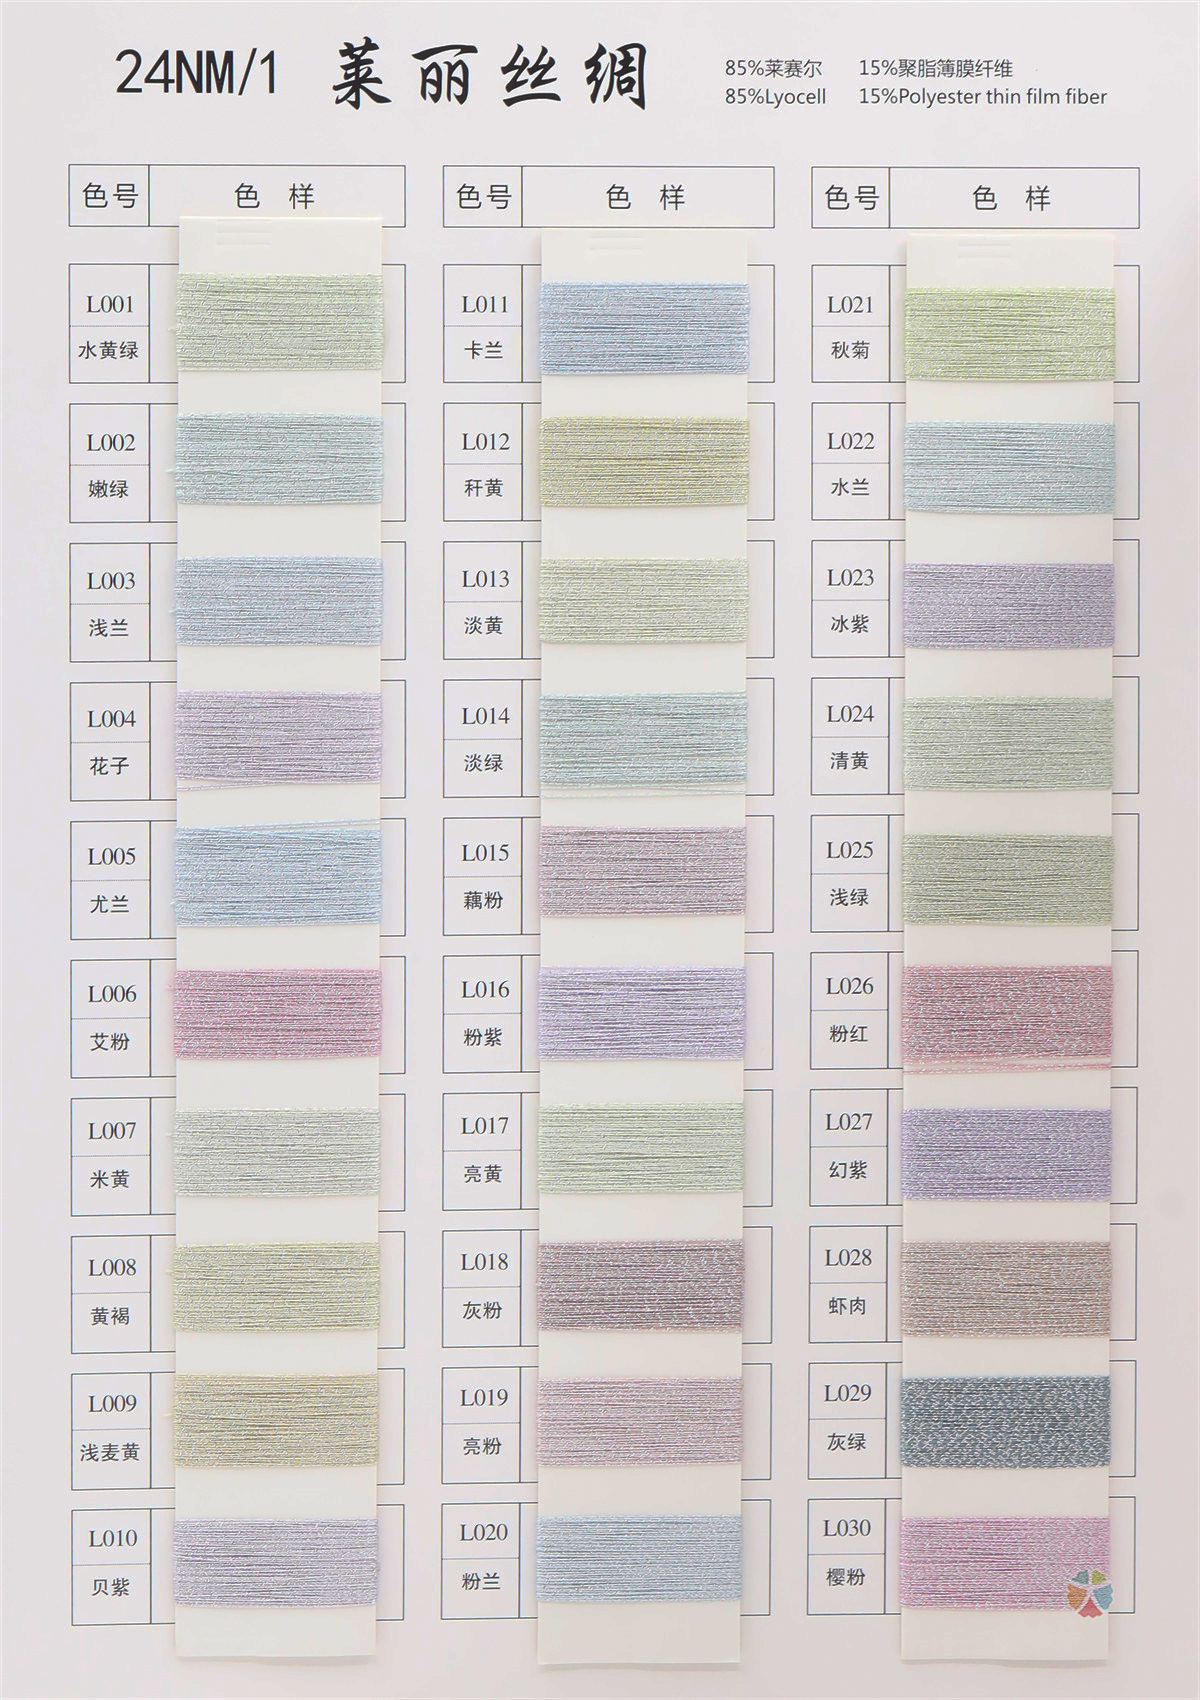 24NM/1 莱丽丝绸
85%莱赛尔 15%聚脂薄膜纤维
85%Lyocell 15%Polyester thin film fiber
色号 色样
L001
水黄绿
L002
嫩绿
L003
浅兰
L004
花子
L005
尤兰
L006
艾粉
L007
米黄
L008
黄褐
L009
浅麦黄
L010
贝紫
色号 色样
L011
卡兰
L012
秆黄
L013
淡黄
L014
淡绿
L015
藕粉
L016
粉紫
L017
亮黄
L018
灰粉
L019
亮粉
L020
粉兰
色号 色样
L021
秋菊
L022
水兰
L023
冰紫
L024
清黄
L025
浅绿
L026
粉红
L027
幻紫
L028
虾肉
L029
灰绿
L030
樱粉